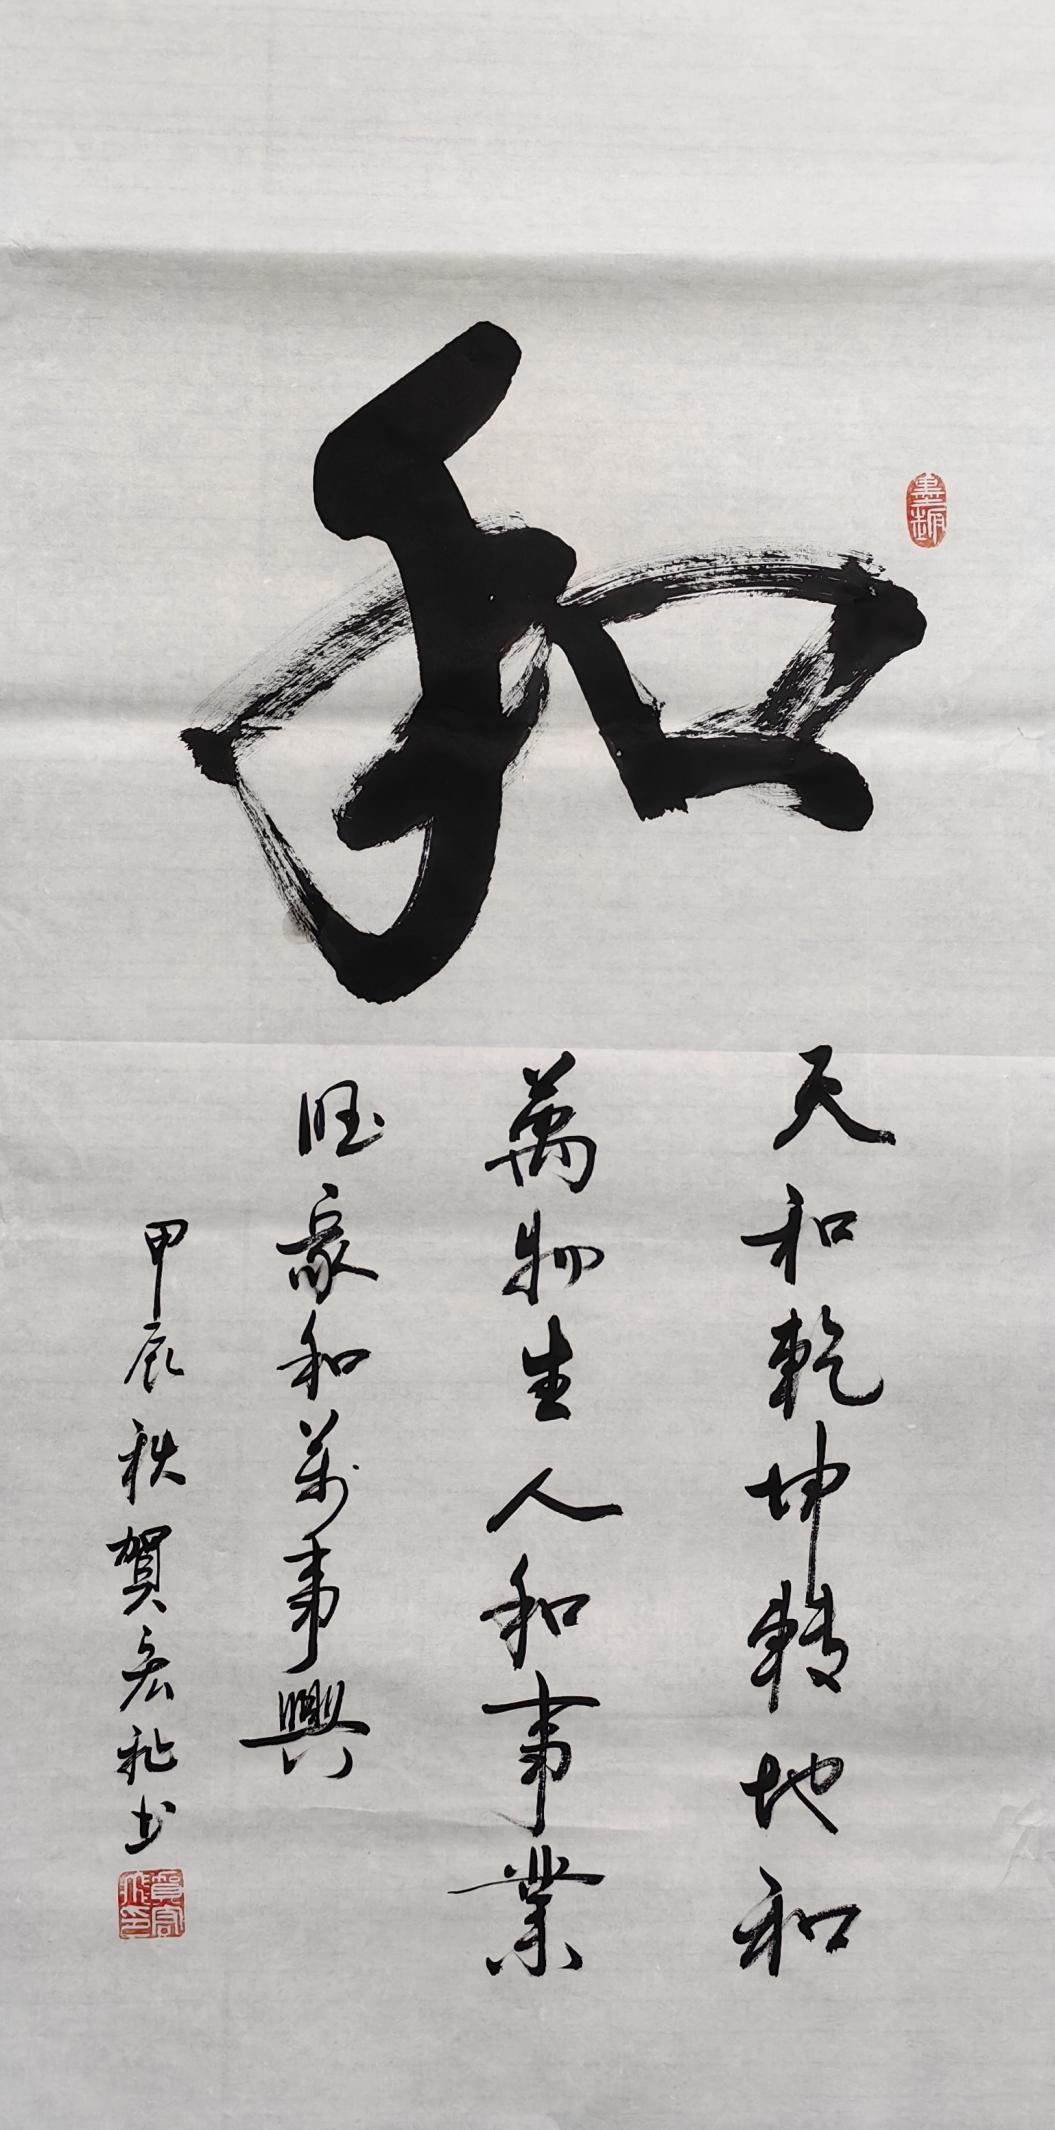 和
天和乾坤轉地和
萬物生人和事業
旺家和萬事興
甲辰秋賀宏
書